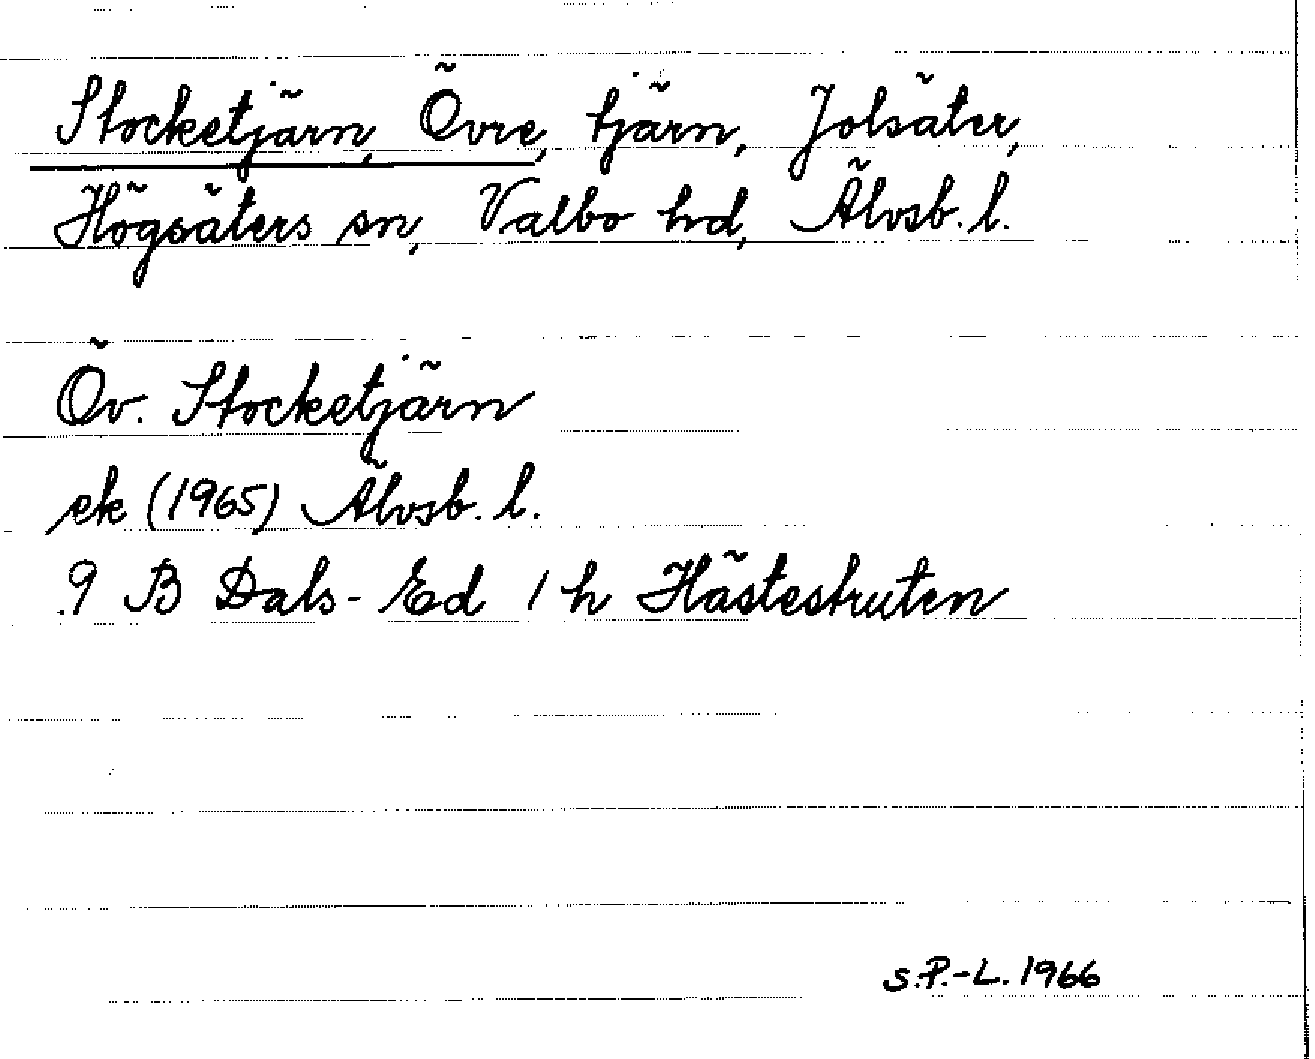 Stocketjärn, Övre, tjärn, Jolsäter,
Högsäters sn, Valbo hd, Älvsb. l.
Öv. Stocketjärn
ek (1965) Älvsb. l.
9 B Dals-Ed 1 h Hästestruten
S.P.-L. 1966